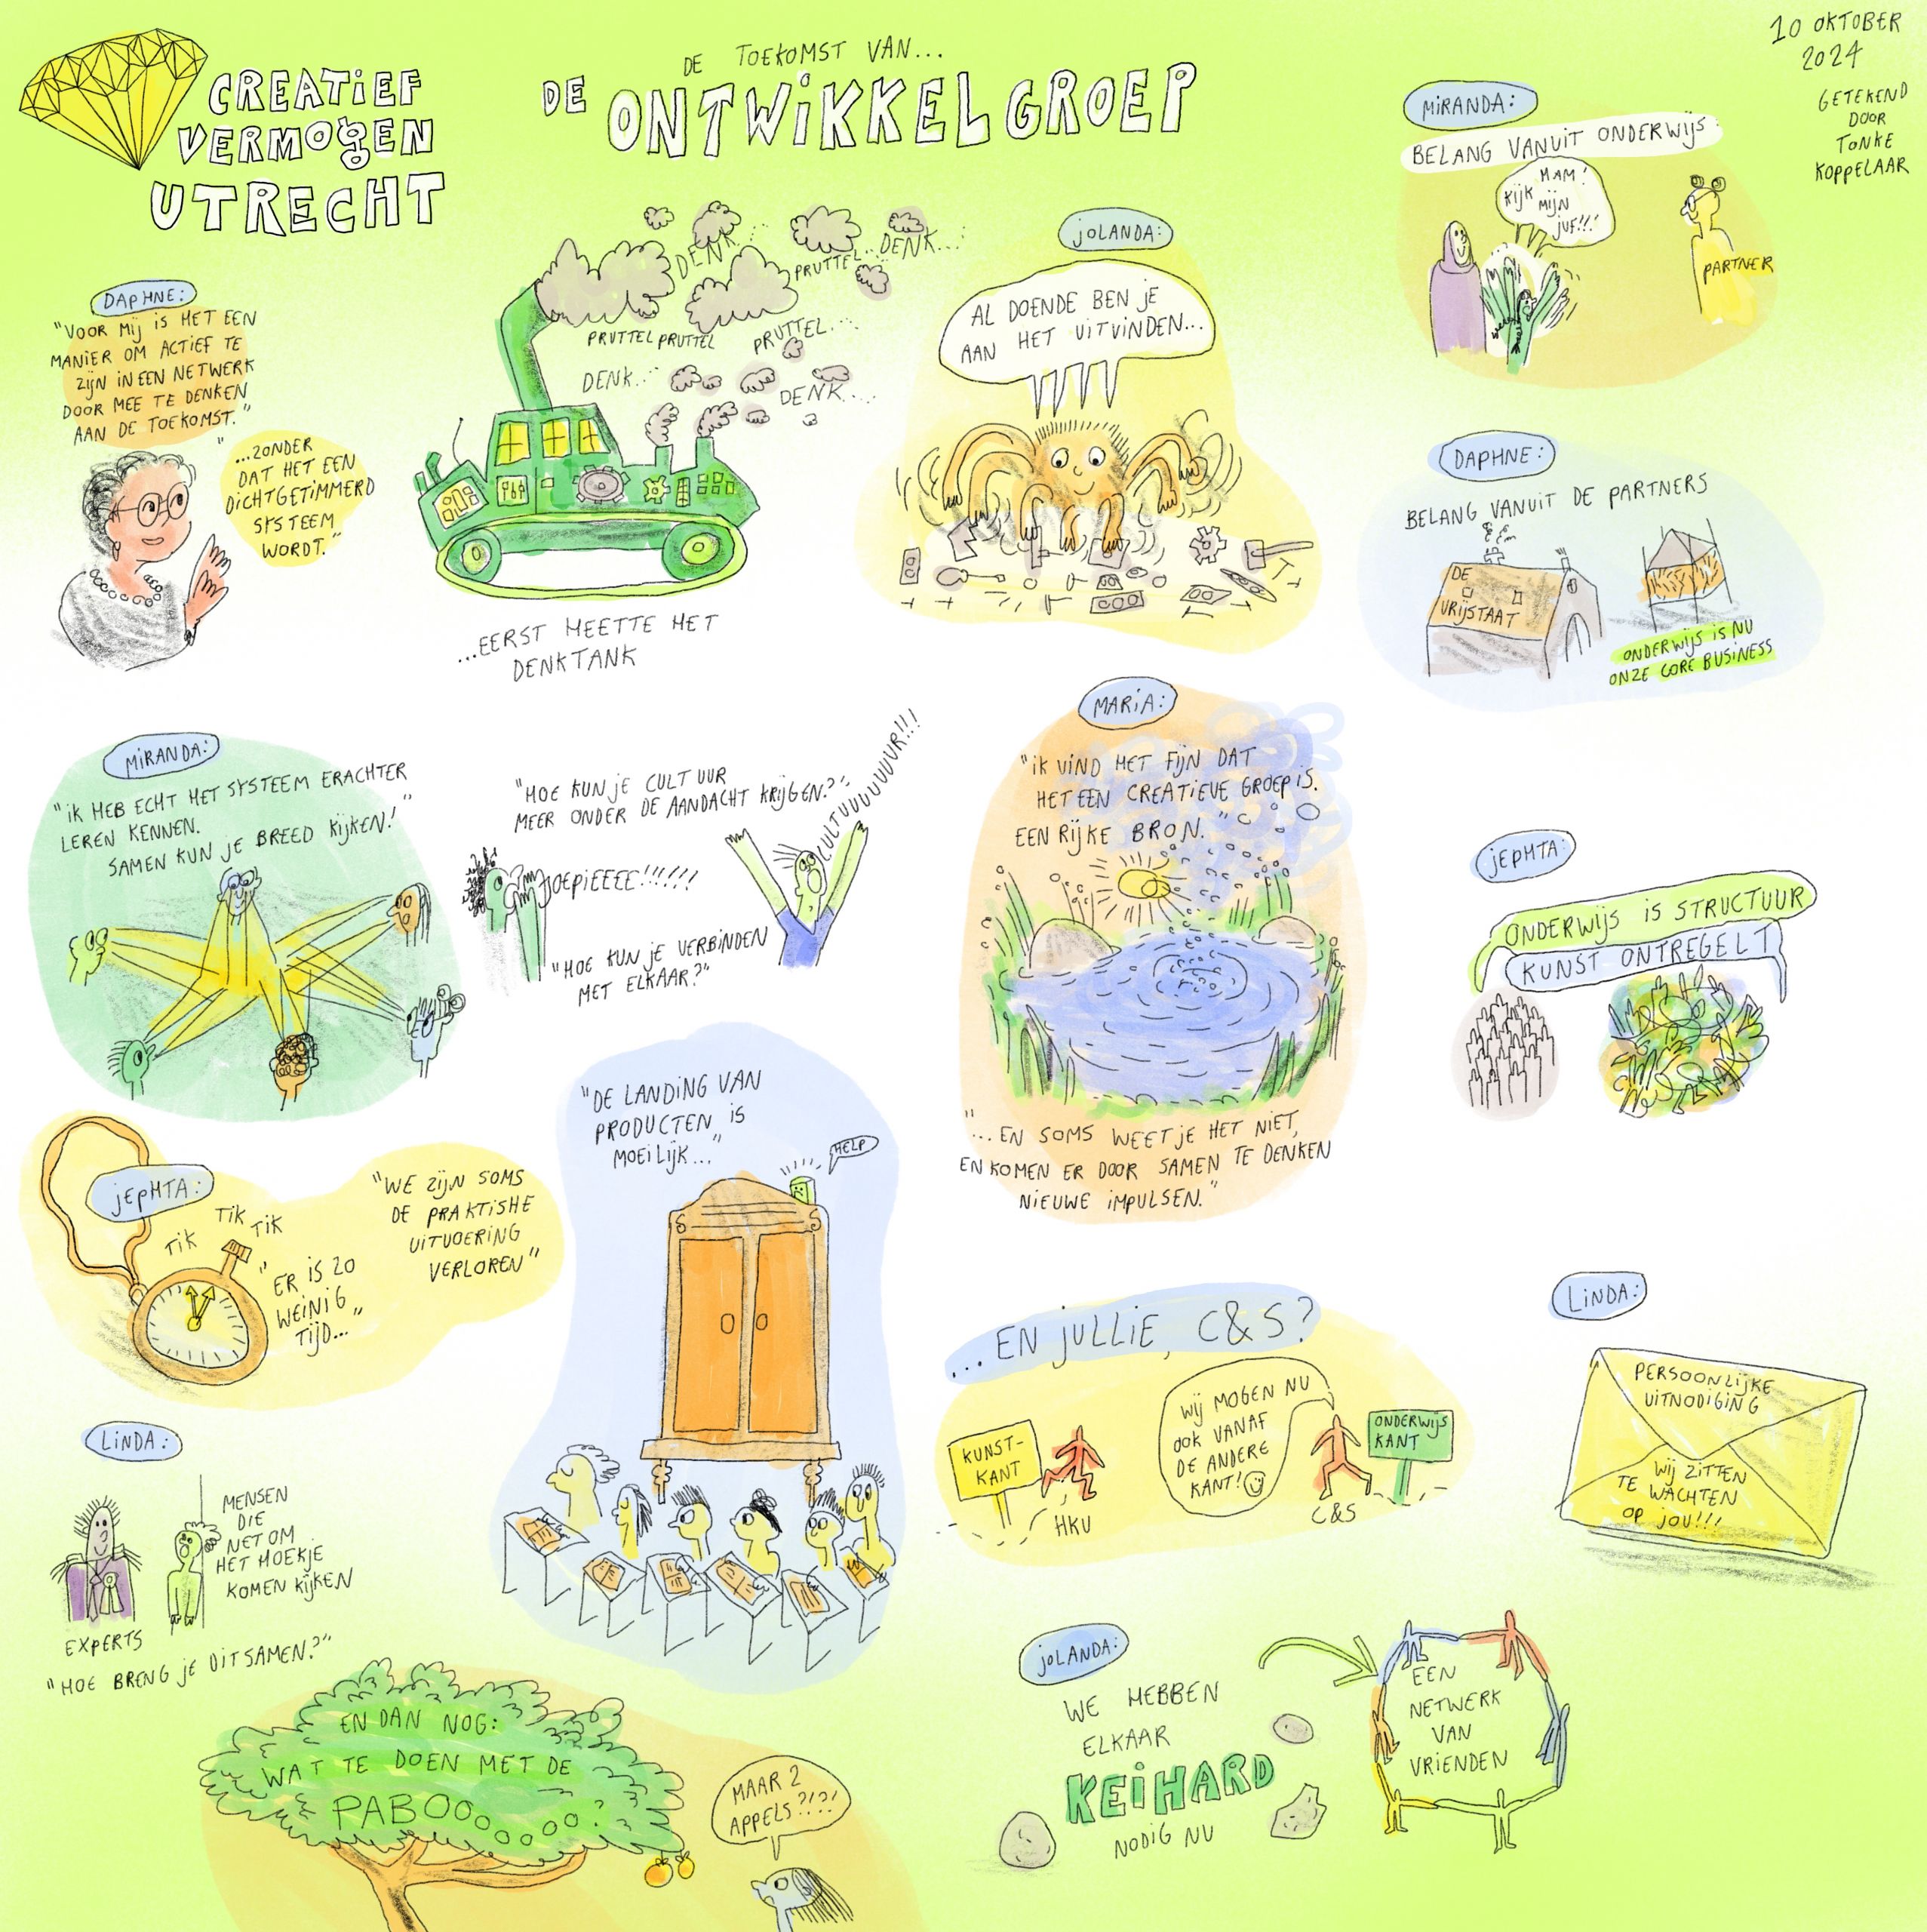 CREATIEF
VERMOGEN
UTRECHT
DE TOEKOMST VAN...
DE ONTWIKKELGROEP
10 OKTOBER
2024
GETEKEND
DOOR
TONKE
KOPPELAAR
DAPHNE:
"VOOR MIJ IS HET EEN
MANIER OM ACTIEF TE
ZIJN IN EEN NETWERK
DOOR MEE TE DENKEN
AAN DE TOEKOMST."
"...ZONDER
DAT HET EEN
DICHTGETIMMERD
SYSTEEM
WORDT."
DENK...
PRUTTEL...
DENK...
PRUTTEL PRUTTEL
PRUTTEL...
DENK...
DENK...
...EERST HEETTE HET
DENKTANK
JOLANDA:
AL DOENDE BEN JE
AAN HET UITVINDEN...
MIRANDA:
BELANG VANUIT ONDERWIJS
MAM!
KIJK MIJN
JUF!!!
PARTNER
DAPHNE:
BELANG VANUIT DE PARTNERS
DE
VRIJSTAAT
ONDERWIJS IS NU
ONZE CORE BUSINESS
MIRANDA:
"IK HEB ECHT HET SYSTEEM ERACHTER
LEREN KENNEN.
SAMEN KUN JE BREED KIJKEN!"
"HOE KUN JE CULTUUR
MEER ONDER DE AANDACHT KRIJGEN?"
CULTUUUUUUUUUR!!!
JOEPIEEEE!!!!!!
"HOE KUN JE VERBINDEN
MET ELKAAR?"
MARIA:
"IK VIND HET FIJN DAT
HET EEN CREATIEVE GROEP IS.
EEN RIJKE BRON."
"...EN SOMS WEET JE HET NIET,
EN KOMEN ER DOOR SAMEN TE DENKEN
NIEUWE IMPULSEN."
JEPHTA:
ONDERWIJS IS STRUCTUUR
KUNST ONTREGELT
JEPHTA:
TIK
TIK
TIK
"ER IS ZO
WEINIG
TIJD..."
"WE ZIJN SOMS
DE PRAKTISHE
UITVOERING
VERLOREN"
"DE LANDING VAN
PRODUCTEN IS
MOEILIJK..."
HELP
LINDA:
EXPERTS
MENSEN
DIE
NET OM
HET HOEKJE
KOMEN KIJKEN
"HOE BRENG JE DIT SAMEN?"
...EN JULLIE, C&S?
KUNST-
KANT
HKU
WIJ MOGEN NU
OOK VANAF
DE ANDERE
KANT!
C&S
ONDERWIJS
KANT
LINDA:
PERSOONLIJKE
UITNODIGING
WIJ ZITTEN
TE WACHTEN
OP JOU!!!
EN DAN NOG:
WAT TE DOEN MET DE
PABOooooooo?
MAAR 2
APPELS?!?!
JOLANDA:
WE HEBBEN
ELKAAR
KEIHARD
NODIG NU
EEN
NETWERK
VAN
VRIENDEN